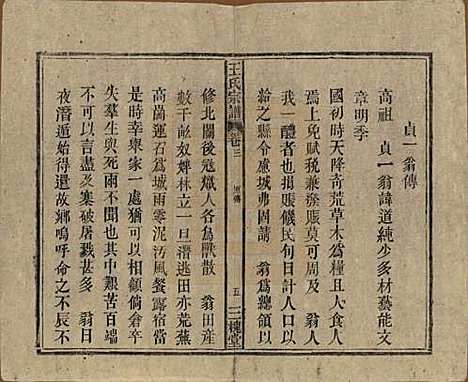 貞一翁傳
高祖 貞一翁諱道純少多材藝能文
章明季
國初時天降奇荒草木為糧且人食人
焉上免賦稅兼滌賑莫可周及 翁人
我一體者也捐賬饑民旬日計人口以
給之縣令慮城弗固請 翁為總領以
王氏宗譜 卷三 傳 五 三槐堂
修北關後寇熾人各為獸散 翁田產
數千畝奴婢林立一旦潛逃田亦荒蕪
高崗運石為城雨零泥污風餐露宿當
是時幸舉家一處猶可以相顧倘倉卒
失羣生與死兩不聞也其中艱苦百端
不可以言盡及寨破屠戮甚多 翁日
夜潛遁始得還故鄉嗚呼命之不辰不